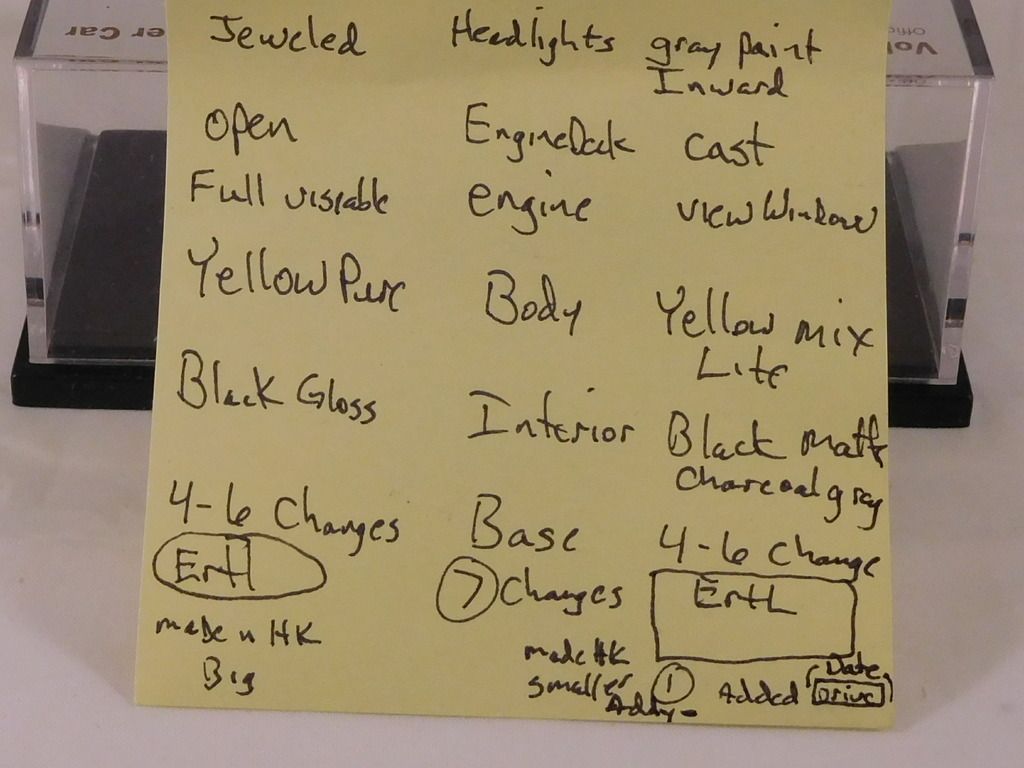 er Car
Vol
Offic
Jeweled Headlights gray paint
Inward
Open EngineDeck cast
Full visiable engine view Window
Yellow Pure Body Yellow mix
Lite
Black Gloss Interior Black matt
Charcoal gray
4-6 Changes Base 4-6 Change
Ertl 7 Changes ErtL
made n HK made HK
Big smaller 1 Added Date